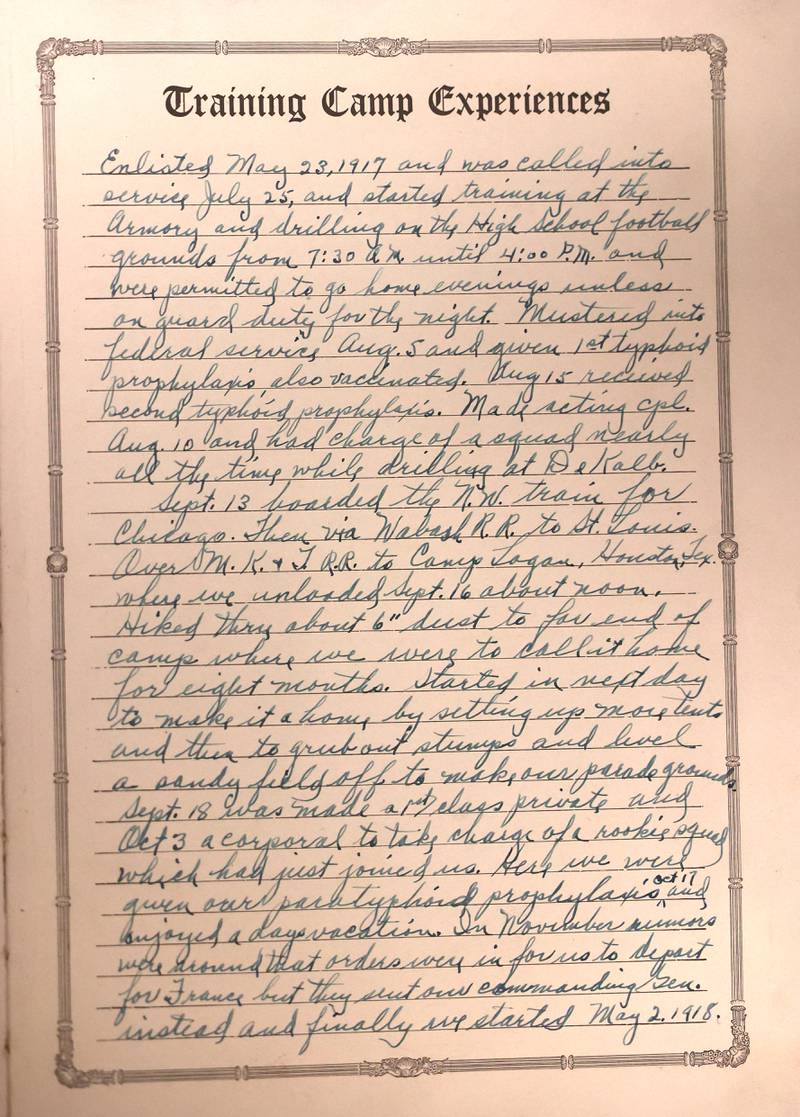 Training Camp Experiences
Enlisted May 23, 1917 and was called into
service July 25, and started training at the
Armory and drilling on the High School football
grounds from 7:30 A.M. until 4:00 P.M. and
were permitted to go home evenings unless
on guard duty for the night. Mustered into
federal service Aug. 5 and given 1st typhoid
prophylaxis, also vaccinated. Aug 15 received
second typhoid prophylaxis. Made acting cpl.
Aug. 10 and had charge of a squad nearly
all the time while drilling at DeKalb.
Sept. 13 boarded the N.W. train for
Chicago. Then via Wabash R.R. to St. Louis.
Over M. K. & T. R.R. to Camp Logan, Houston, Tex.
where we unloaded Sept. 16 about noon.
Hiked thru about 6" dust to far end of
camp where we were to call it home
for eight months. Started in next day
to make it a home by setting up more tents
and then to grub out stumps and level
a sandy field off to make our parade grounds.
Sept. 18 was made a 1st class private and
Oct 3 a corporal to take charge of a rookie squad
which had just joined us. Here we were
given our paratyphoid prophylaxis Oct 17 and
enjoyed a days vacation. In November rumors
were around that orders were in for us to depart
for France but they sent our commanding Gen.
instead and finally we started May 2, 1918.